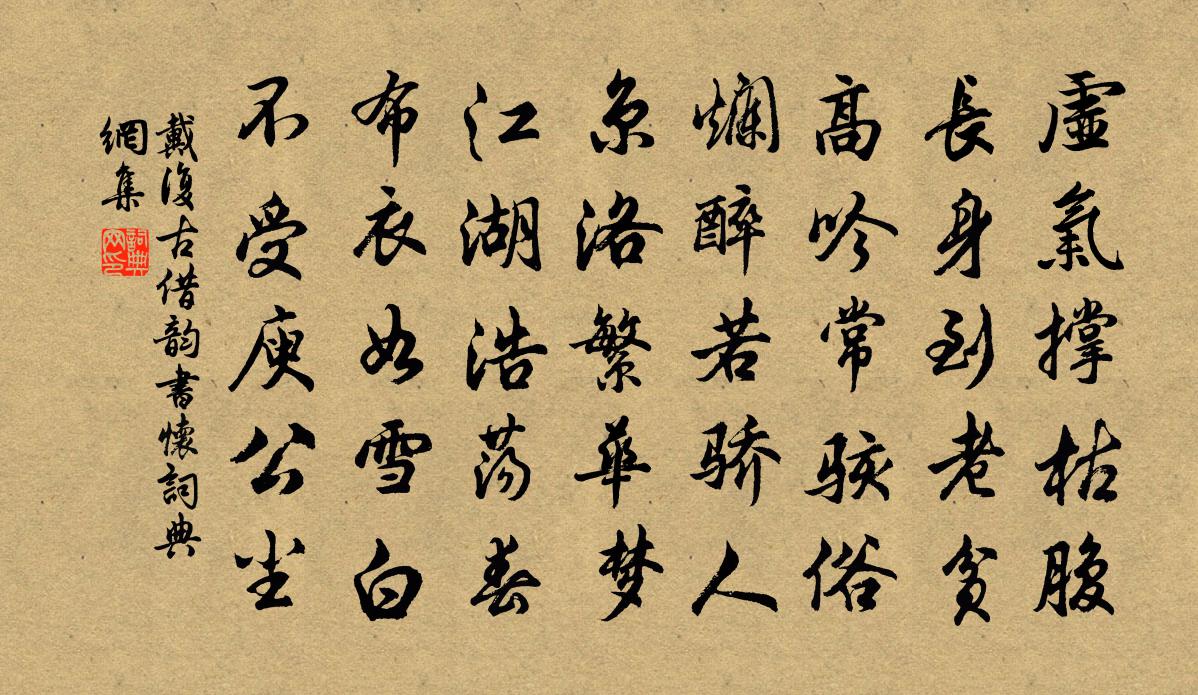 虛氣撐枯腹
長身到老貧
高吟常駭俗
爛醉若骄人
京洛繁華梦
江湖浩荡春
布衣如雪白
不受庾公尘
戴復古借韵書懷詞典
網集
詞典
网印